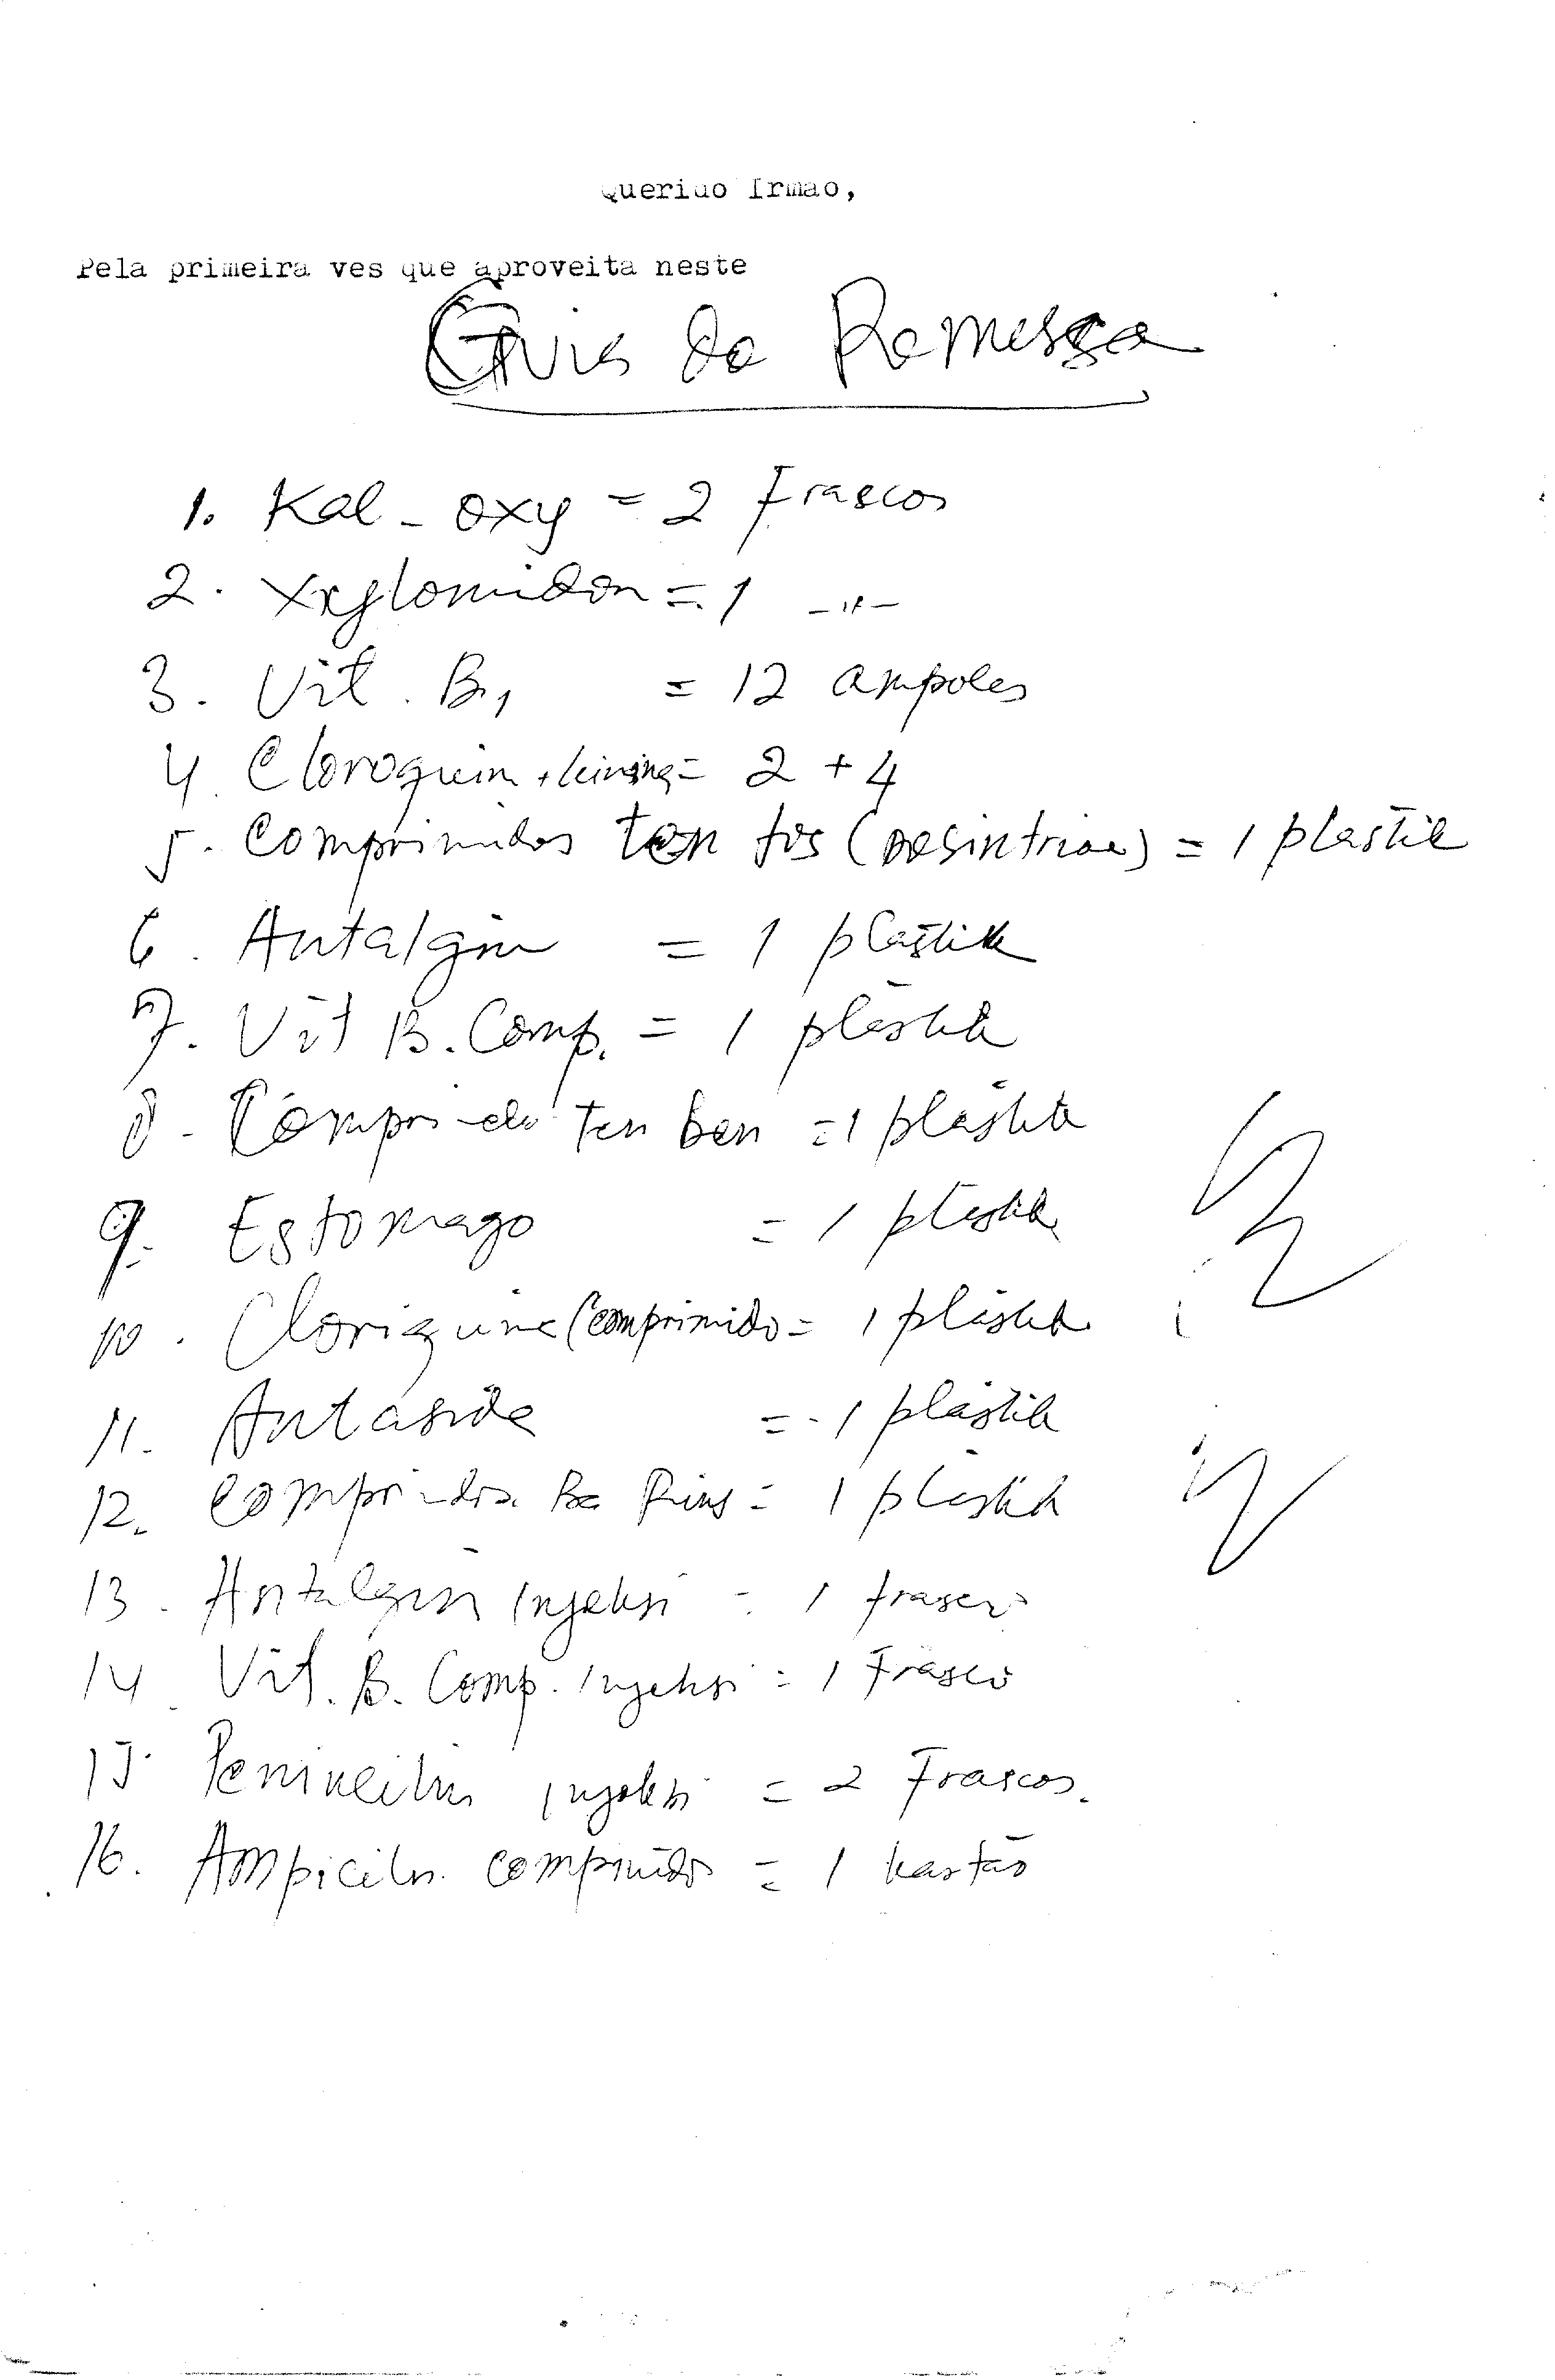 Querido Irmao,
Pela primeira ves que aproveita neste
Guia da Remessa
1. Kal - oxy = 2 Frascos
2. Xylomidon = 1 - " -
3. Vit. B1 = 12 ampoles
4. Cloroquin + = 2 + 4
5. Comprimidos ten fos (Desintriae) = 1 plastik
6. Antalgin = 1 plastik
7. Vit B. Comp. = 1 plastik
8. ten ben = 1 plastik
9. Estomago = 1 plastik
10. Cloriquine (comprimido = 1 plastik
11. Antaside = 1 plastik
12. = 1 plastik
13. Antalgin injeksi = 1 frasco
14. Vit. B. Comp. injeksi = 1 Frasco
15. injeksi = 2 Frascos.
16. Ampicilin comprimido = 1 kartão